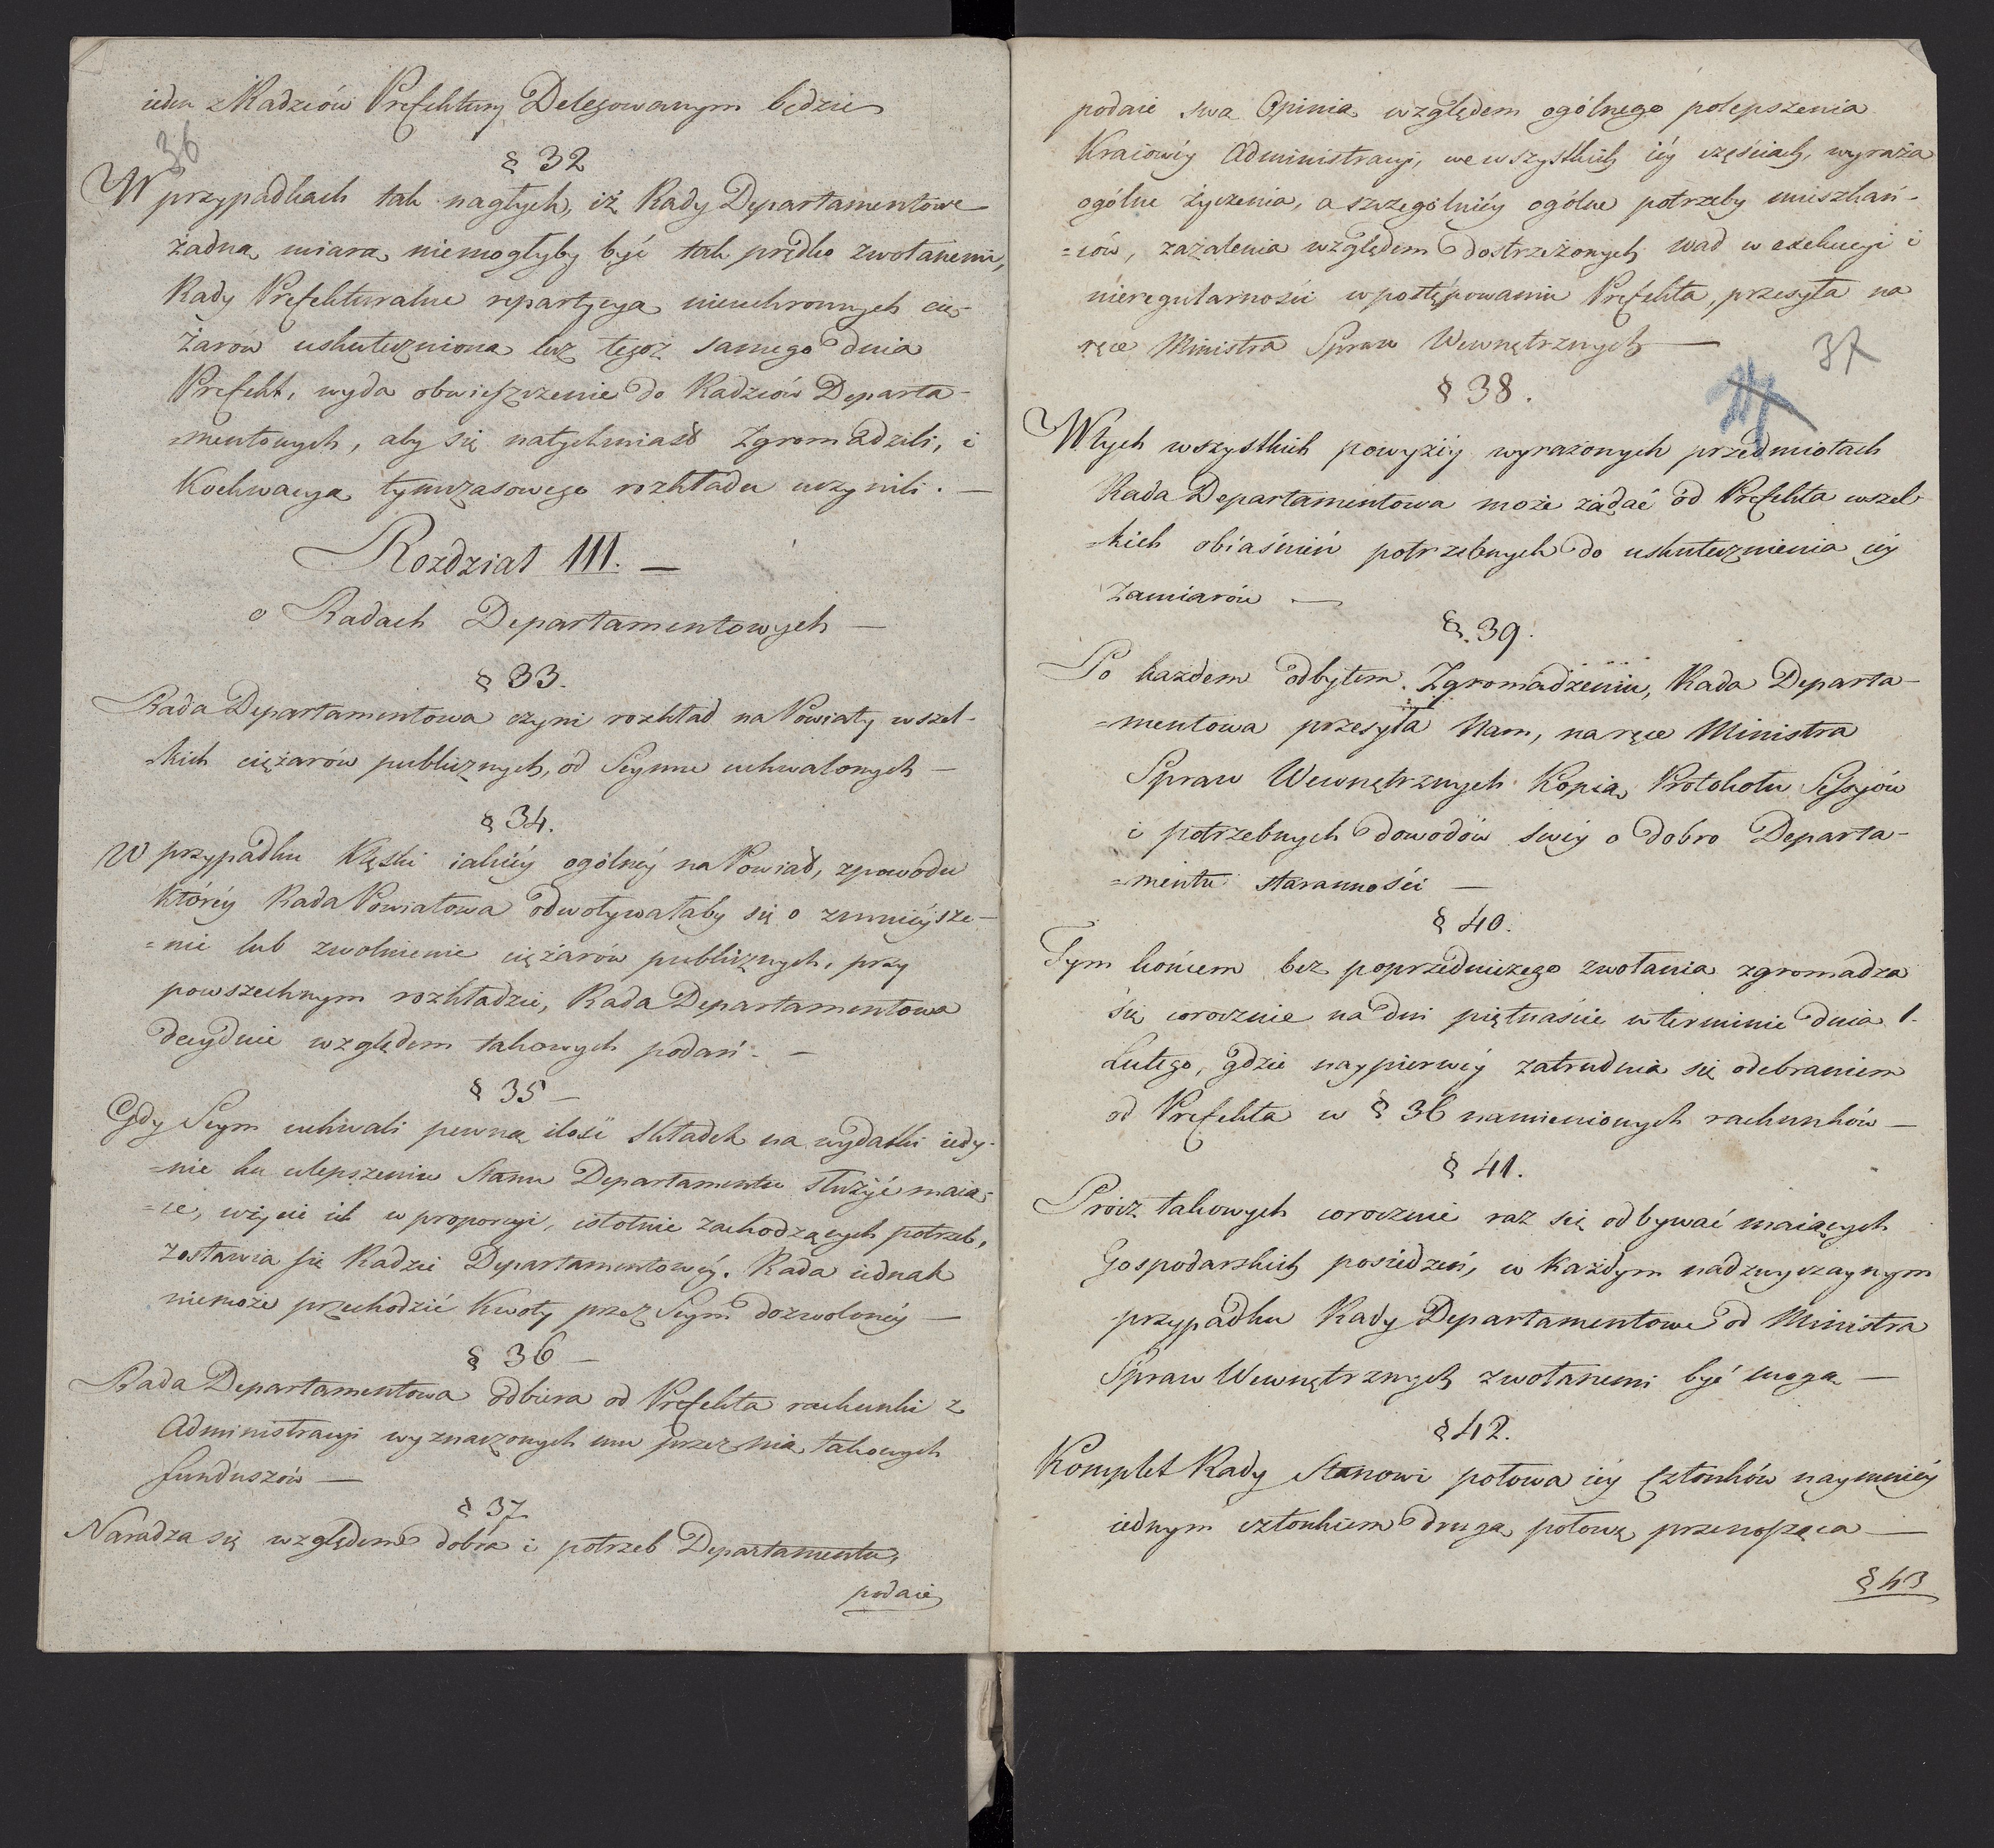 ieden z Radzców Prefektury Delegowanym będzie
36
§ 32
W przypadkach tak nagłych, iż Rady Departamentowe
żadną miarą niemogłyby być tak prędko zwołanemi,
Rady Prefekturalne repartycyą nieuchronnych cię-
żarów uskutecznioną lecz tegoż samego dnia
Prefekt, wyda obwieszczenie do Radzców Departa-
mentowych, aby się natychmiast zgromadzili, i
tymczasowego rozkładu uczynili. —
Rozdział III. —
o Radach Departamentowych —
§ 33.
Rada Departamentowa czyni rozkład na Powiaty wszel-
kich ciężarów publicznych, od Seymu uchwalonych —
§ 34.
W przypadku klęski iakiéy ogólnéy na Powiat, zpowodu
któréy Rada Powiatowa odwoływałaby się o zmnieysze-
=nie lub zwolnienie ciężarów publicznych, przy
powszechnym rozkładzie, Rada Departamentowa
decyduie względem takowych podań. —
§ 35 —
Gdy Seym uchwali pewną ilość składek na wydatki iedy-
=nie ku ulepszeniu Stanu Departamentu służyć maią-
=ce, użycie ich w proporcyi, istotnie zachodzących potrzeb,
zostawia się Radzie Departamentowéy. Rada iednak
niemoże przechodzić kwoty przez Seym dozwolonéy —
§ 36 —
Rada Departamentowa odbiera od Prefekta rachunki z
Administracyi wyznaczonych mu przez nią takowych
funduszów —
§ 37
Naradza się względem dobra i potrzeb Departamentu,
podaie
podaie swą Opinią względem ogólnego polepszenia
Kraiowéy Administracyi, we wszystkich iéy częściach, wyraża
ogólne życzenia, a szczególniéy ogólne potrzeby mieszkań-
=ców, zażalenia względem dostrzeżonych wad w exekucyi i
nieregularności w postępowaniu Prefekta, przesyła na
ręce Ministra Spraw Wewnętrznych —
37
§ 38.
W tych wszystkich powyżéy wyrażonych przedmiotach
Rada Departamentowa może żądać od Prefekta wszel-
=kich obiaśnień potrzebnych do uskutecznienia iéy
zamiarów —
§. 39.
Po każdem odbytem Zgromadzeniu, Rada Departa-
=mentowa przesyła Nam, na ręce Ministra
Spraw Wewnętrznych Kopią Protokołu Sessyów
i potrzebnych dowodów swéy o dobro Departa-
=mentu staranności —
§ 40.
Tym końcem bez poprzedniczego zwołania zgromadza
się corocznie na dni piętnaście w terminie dnia 1.
Lutego, gdzie naypierwéy zatrudnia się odebraniem
od Prefekta w § 36 namienionych rachunków —
§ 41.
Prócz takowych corocznie raz się odbywać maiących
Gospodarskich posiedzeń, w każdym nadzwyczaynym
przypadku Rady Departamentowe od Ministra
Spraw Wewnętrznych zwołanemi być mogą —
§ 42.
Komplet Rady Stanowi połowa iéy Członków naymniéy
iednym członkiem drugą połowę przenosząca —
§ 43